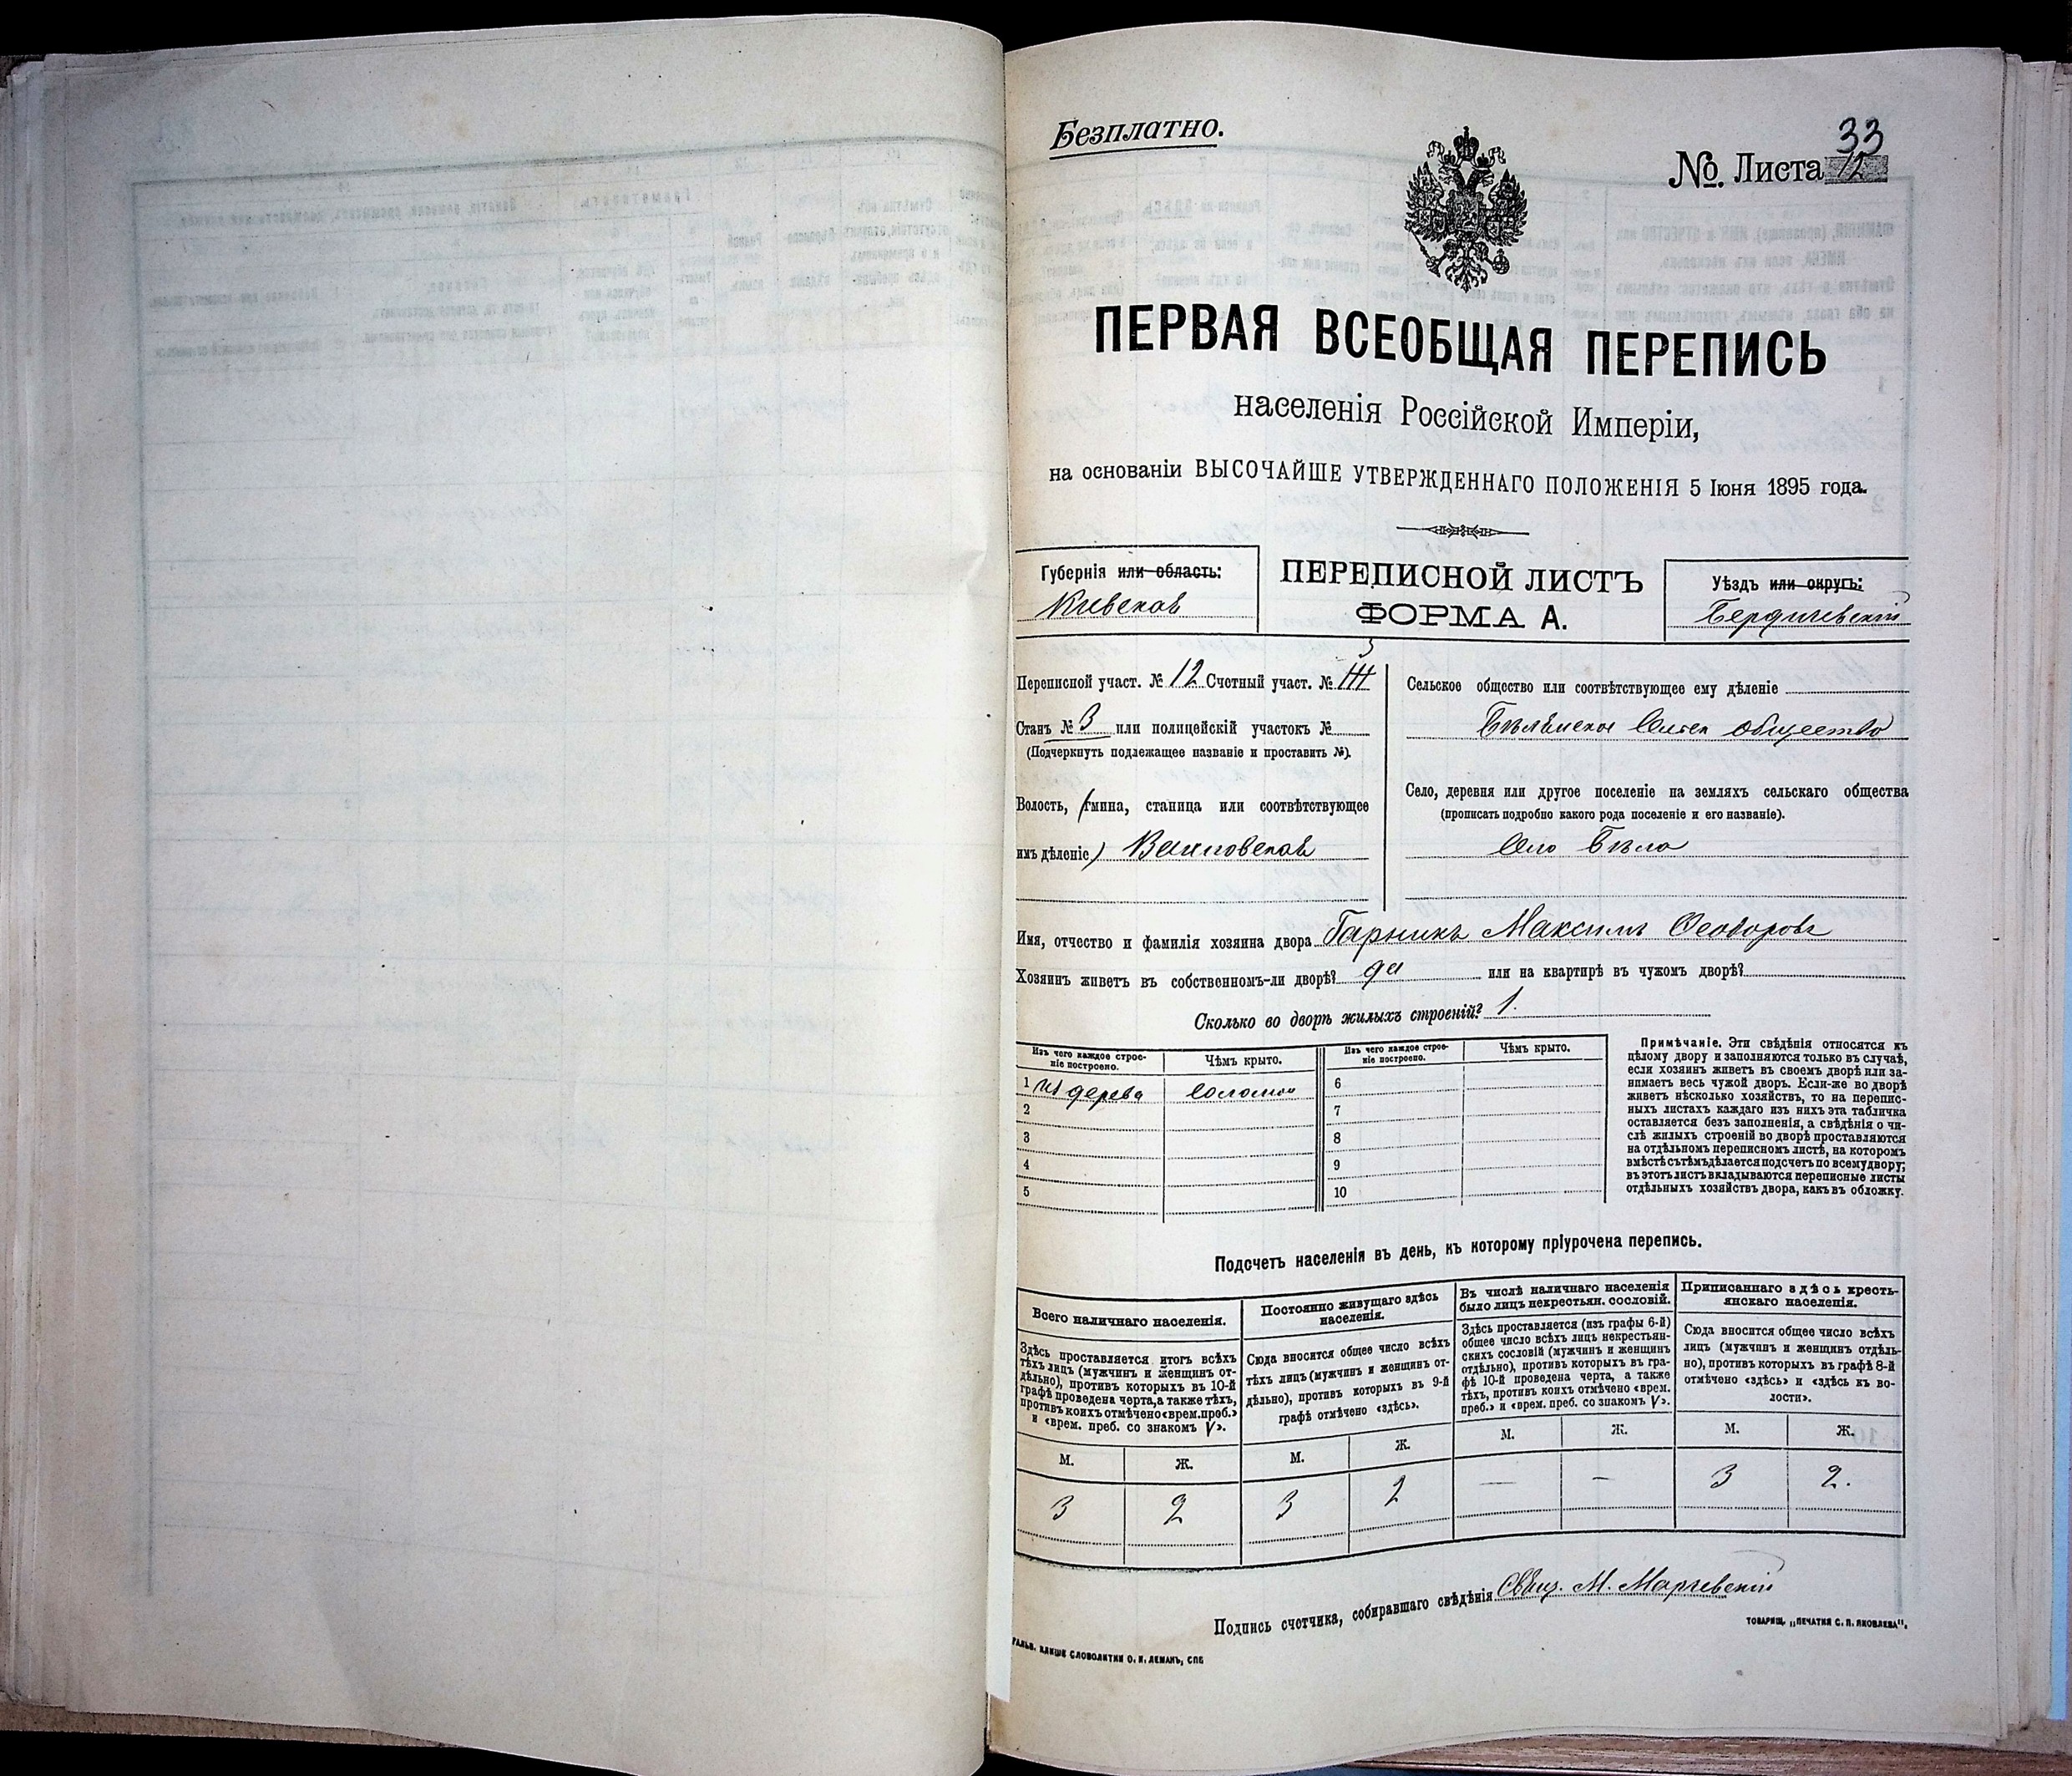 Безплатно.
№ Листа 33
12
ПЕРВАЯ ВСЕОБЩАЯ ПЕРЕПИСЬ
населенія Россійской Имперіи,
на основаніи ВЫСОЧАЙШЕ УТВЕРЖДЕННАГО ПОЛОЖЕНІЯ 5 Іюня 1895 года.
Губернія или область:
Кіевская
ПЕРЕПИСНОЙ ЛИСТЪ
ФОРМА А.
Уѣздъ или округъ:
Бердичевскій
Переписной участ. № 12 Счетный участ. № III
Станъ № 3 или полицейскій участокъ №
(Подчеркнуть подлежащее названіе и проставить №).
Волость, (гмина, станица или соотвѣтствующее
имъ дѣленіе)
Сельское общество или соотвѣтствующее ему дѣленіе
общество
Село, деревня или другое поселеніе на земляхъ сельскаго общества
(прописать подробно какого рода поселеніе и его названіе).
Село
Имя, отчество и фамилія хозяина двора Гарникъ Максимъ Феодоровъ
Хозяинъ живетъ въ собственномъ-ли дворѣ? да или на квартирѣ въ чужомъ дворѣ?
Сколько во дворѣ жилыхъ строеній? 1.
Изъ чего каждое строе-
ніе построено.
Чѣмъ крыто.
1 Из дерева
соломою
2
3
4
5
Изъ чего каждое строе-
ніе построено.
Чѣмъ крыто.
6
7
8
9
10
Примѣчаніе. Эти свѣдѣнія относятся къ
цѣлому двору и заполняются только въ случаѣ,
если хозяинъ живетъ въ своемъ дворѣ или за-
нимаетъ весь чужой дворъ. Если-же во дворѣ
живетъ нѣсколько хозяйствъ, то на перепис-
ныхъ листахъ каждаго изъ нихъ эта табличка
оставляется безъ заполненія, а свѣдѣнія о чи-
слѣ жилыхъ строеній во дворѣ проставляются
на отдѣльномъ переписномъ листѣ, на которомъ
вмѣстѣ съ тѣмъ дѣлается подсчетъ по всему двору;
въ этотъ листъ вкладываются переписные листы
отдѣльныхъ хозяйствъ двора, какъ въ обложку.
Подсчетъ населенія въ день, къ которому пріурочена перепись.
Всего наличнаго населенія.
Здѣсь проставляется итогъ всѣхъ
тѣхъ лицъ (мужчинъ и женщинъ от-
дѣльно), противъ которыхъ въ 10-й
графѣ проведена черта, а также тѣхъ,
противъ коихъ отмѣчено «врем. преб.»
и «врем. преб. со знакомъ V».
М.
Ж.
3
2
Постоянно живущаго здѣсь
населенія.
Сюда вносится общее число всѣхъ
тѣхъ лицъ (мужчинъ и женщинъ от-
дѣльно), противъ которыхъ въ 9-й
графѣ отмѣчено «здѣсь».
М.
Ж.
3
2
Въ числѣ наличнаго населенія
было лицъ некрестьян. сословій.
Здѣсь проставляется (изъ графы 6-й)
общее число всѣхъ лицъ некрестьян-
скихъ сословій (мужчинъ и женщинъ
отдѣльно), противъ которыхъ въ гра-
фѣ 10-й проведена черта, а также
тѣхъ, противъ коихъ отмѣчено «врем.
преб.» и «врем. преб. со знакомъ V».
М.
Ж.
—
—
Приписаннаго здѣсь кресть-
янскаго населенія.
Сюда вносится общее число всѣхъ
лицъ (мужчинъ и женщинъ отдѣль-
но), противъ которыхъ въ графѣ 8-й
отмѣчено «здѣсь» и «здѣсь къ во-
лости».
М.
Ж.
3
2.
Подпись счетчика, собиравшаго свѣдѣнія Свящ. М. Маргевскій
ТОВАРИЩ. „ПЕЧАТНЯ С. П. ЯКОВЛЕВА".
КЛИШЕ СЛОВОЛИТНИ О. И. ЛЕМАНЪ, СПБ